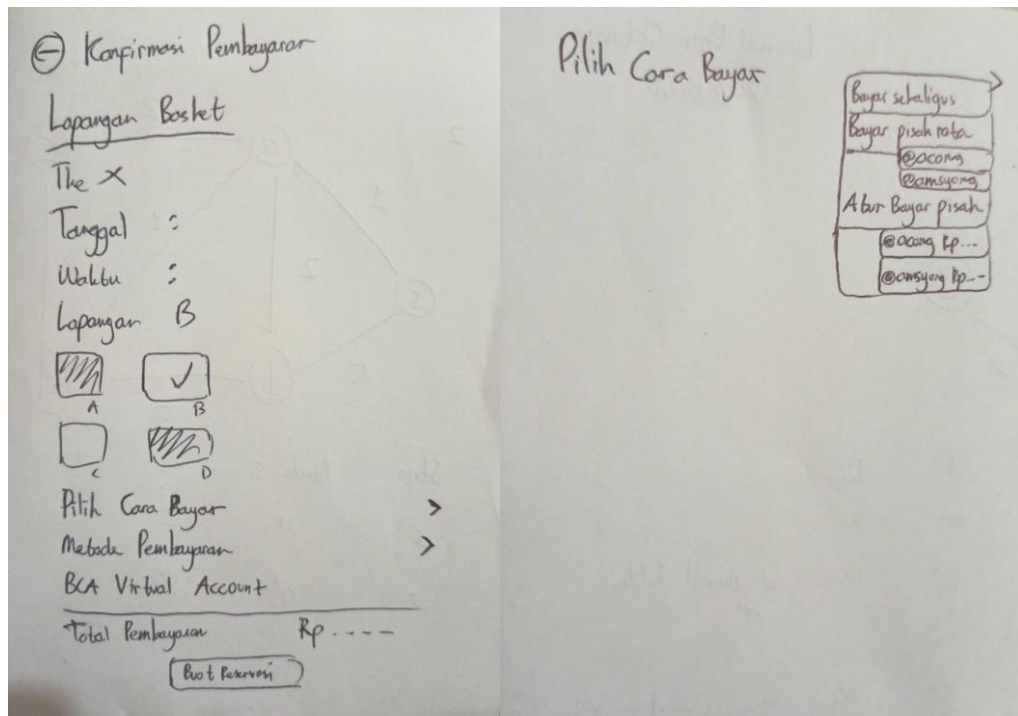 Konfirmasi Pembayaran
Lapangan Basket
The X
Tanggal :
Waktu :
Lapangan B
A
B
C
D
Pilih Cara Bayar >
Metode Pembayaran >
BCA Virtual Account
Total Pembayaran Rp ----
Buat Reservasi
Pilih Cara Bayar
Bayar sekaligus
Bayar pisah rata
@acong
@amsyong
Atur Bayar pisah
@acong Rp...
@amsyong Rp...